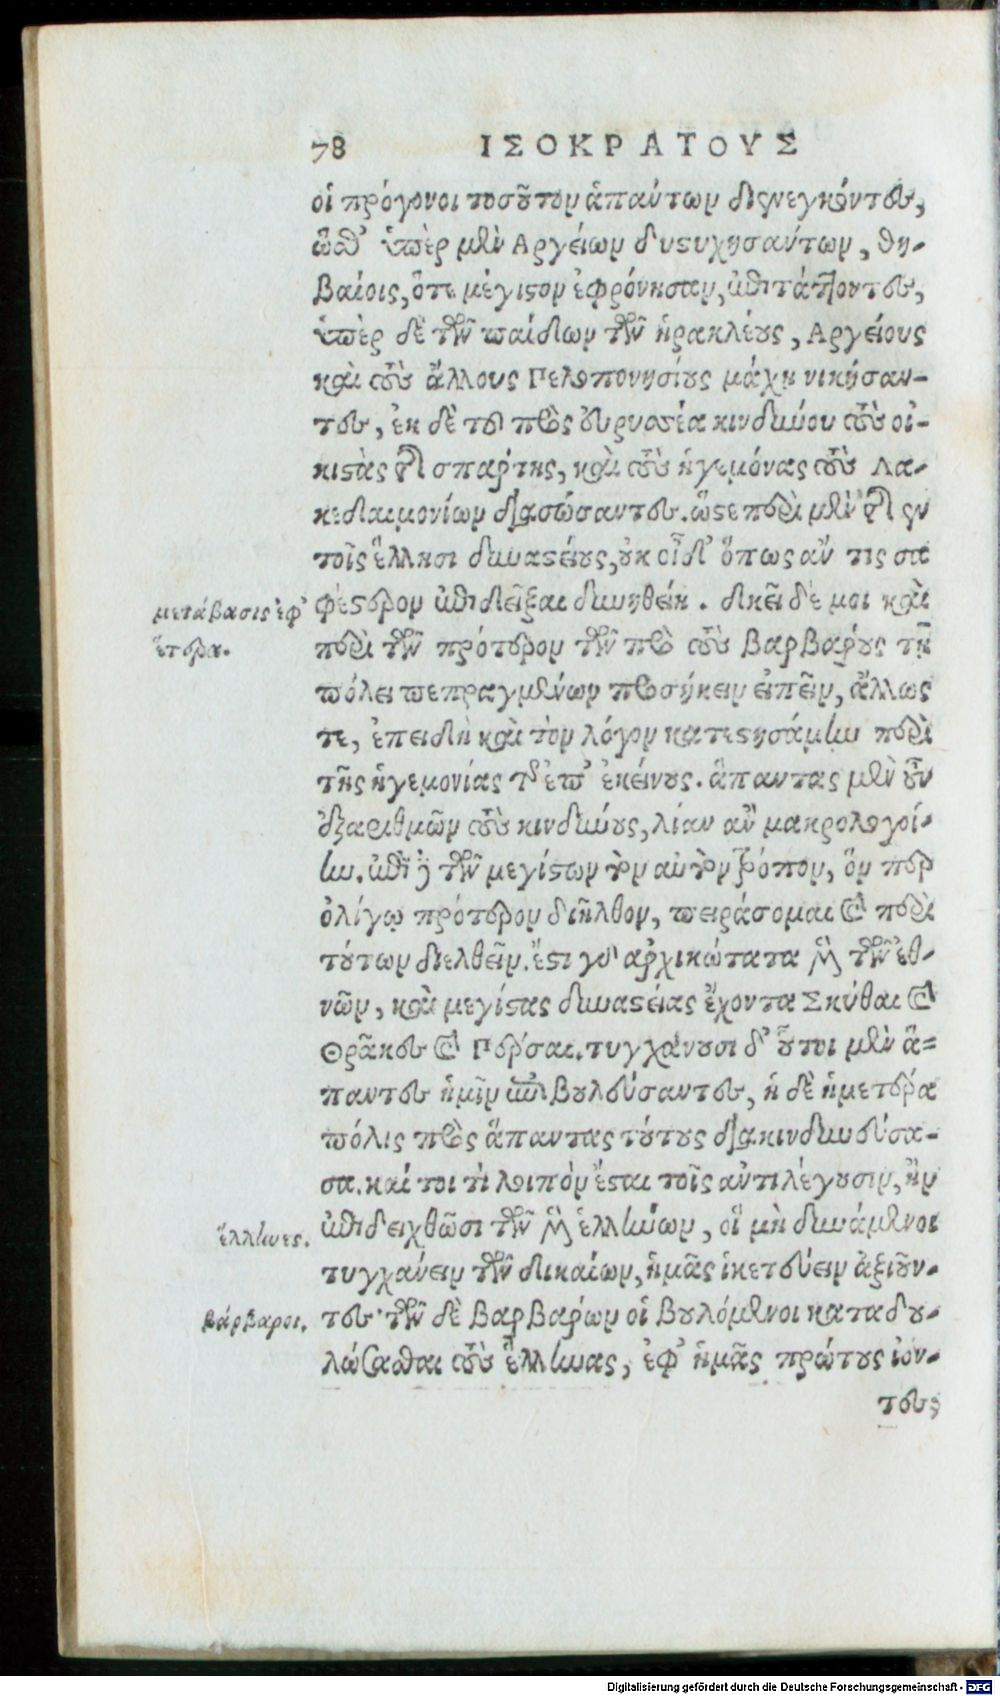 78 ΙΣΟΚΡΑΤΟΥΣ
οἱ πρόγονοι τοσοῦτον ἁπάντων διενεγκόντες,
ὥσθ' ὑπὲρ μὲν Αργείων δυςυχησάντων, θη-
βαίοις, ὅτε μέγιςον ἐφρόνησαν, ἐπιτάττοντες,
ὑπὲρ δὲ τῶν παίδων τῶν ἡρακλέους, Αργείους
καὶ τοὺς ἄλλους Πελοπονησίους μάχῃ νικήσαν-
τες, ἐκ δὲ τοῦ πρὸς εὐρυσθέα κινδύνου τοὺς οἰ-
κιςὰς τῆς σπάρτης, καὶ τοὺς ἡγεμόνας τοὺς Λα-
κεδαιμονίων διασώσαντες. ὥςε περὶ μὲν τῆς ἐν
τοῖς ἕλλησι δυναςείας, οὐκ οἶδ' ὅπως ἄν τις σα
φέςερον ἐπιδεῖξαι δυνηθείη. δοκεῖ δέ μοι καὶ
μετάβασις ἐφ'
ἕτερα.
περὶ τῶν πρότερον τῶν πρὸς τοὺς βαρβάρους τῇ
πόλει πεπραγμένων προσήκειν εἰπεῖν, ἄλλως
τε, ἐπειδὴ καὶ τὸν λόγον κατεςησάμην περὶ
τῆς ἡγεμονίας τῆς ἐπ' ἐκείνους. ἅπαντας μὲν οὖν
ἐξαριθμῶν τοὺς κινδύνους, λίαν ἂν μακρολογοί-
ην. ἐπὶ δὲ τῶν μεγίςων τὸν αὐτὸν τρόπον, ὅν περ
ὀλίγῳ πρότερον διῆλθον, πειράσομαι καὶ περὶ
τούτων διελθεῖν. ἔςι γὰρ ἀρχικώτατα μὲν τῶν ἐθ-
νῶν, καὶ μεγίςας δυναςείας ἔχοντα Σκύθαι καὶ
Θρᾶκες καὶ Πέρσαι. τυγχάνουσι δ' οὗτοι μὲν ἅ=
παντες ἡμῖν ἐπιβουλεύσαντες, ἡ δὲ ἡμετέρα
πόλις πρὸς ἅπαντας τούτους διακινδυνεύσα-
σα. καί τοι τί λοιπὸν ἔςαι τοῖς ἀντιλέγουσιν, ἢν
ἐπιδειχθῶσι τῶν μὲν ἑλλήνων, οἱ μὴ δυνάμενοι
ἕλληνες.
τυγχάνειν τῶν δικαίων, ἡμᾶς ἱκετεύειν ἀξιοῦν-
βάρβαροι.
τες· τῶν δὲ βαρβάρων οἱ βουλόμενοι καταδου-
λώσασθαι τοὺς ἕλληνας, ἐφ' ἡμᾶς πρώτους ἰόν-
τες;
Digitalisierung gefördert durch die Deutsche Forschungsgemeinschaft - DFG